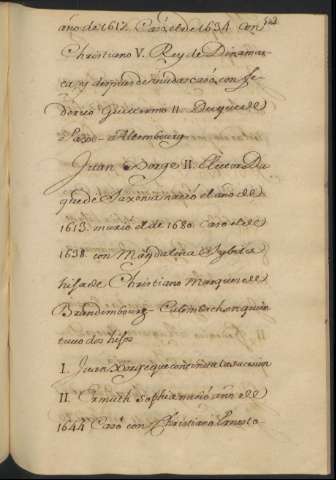 502
año de 1617. Casó el de 1634. con
Christiano V. Rey de Dinamar-
ca, y despues de viuda casó con Fe-
derico Guillermo II. Duque de
Saxe-Altembourg
Juan Jorge II. Elector Du
que de Saxonia nació el año de
1613. murio el de 1680. Caso el de
1638. con Magdalena Sybila
hija de Christiano Marques de
Brandembourg- Culembach con quien
tuvo dos hijos
I. Juan Jorge que continúa la sucesion
II. Ermuth Sophia nació año de
1644 Casó con Christiano Ernesto